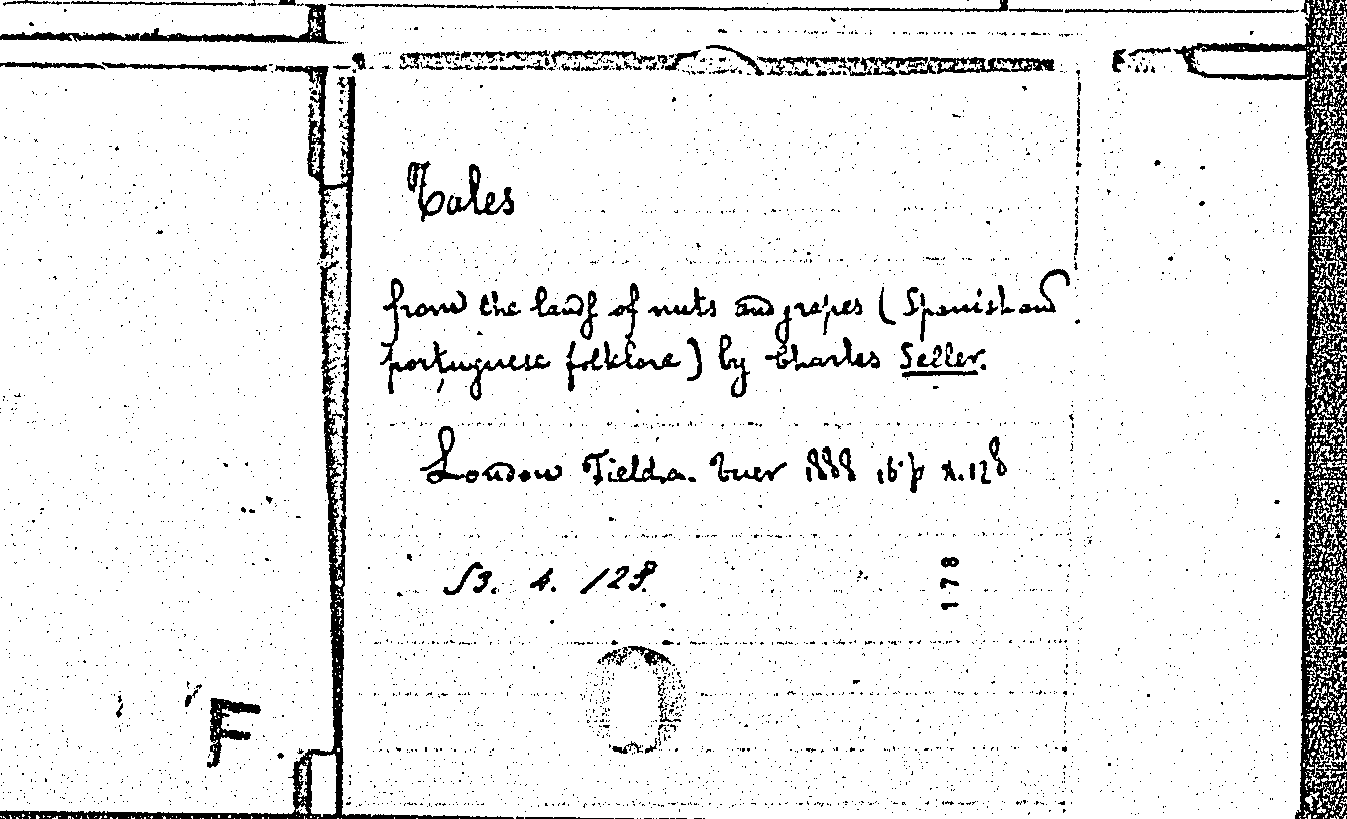 Tales
from the lands of nuts and grapes (Spanish and
portuguese folklore) by Charles Seller.
London Field a. Tuer 1888 16° p x.128
S3. 4. 128.
178
F